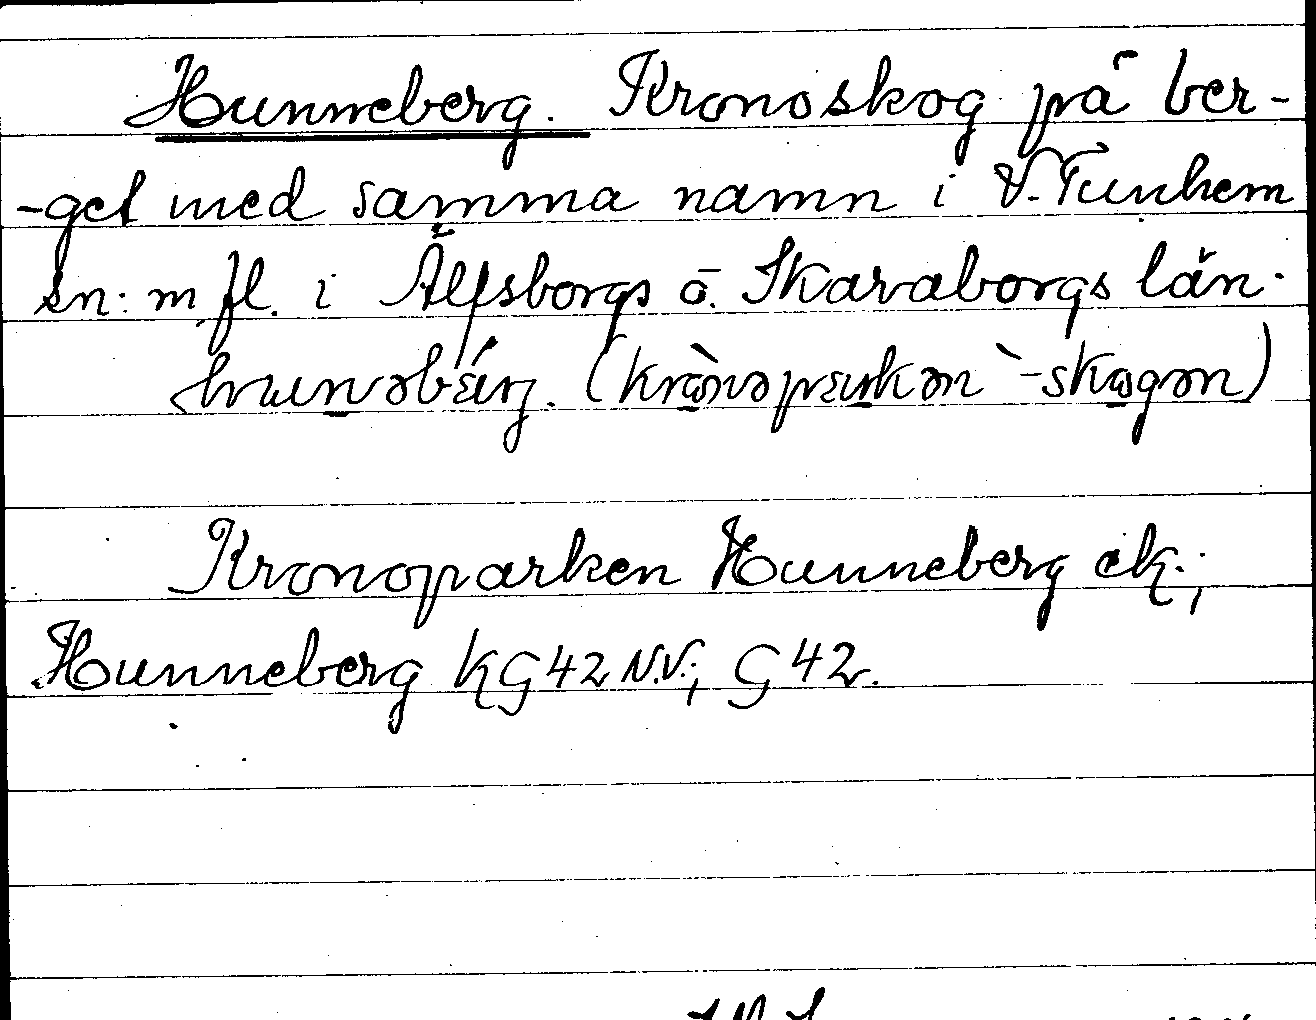 Hunneberg. Kronoskog på ber-
-get med samma namn i V. Tunhem
sn: m fl. i Älfsborgs o. Skaraborgs län.
Kronoparken Hunneberg ek.;
Hunneberg KG 42 N.V.; G 42.